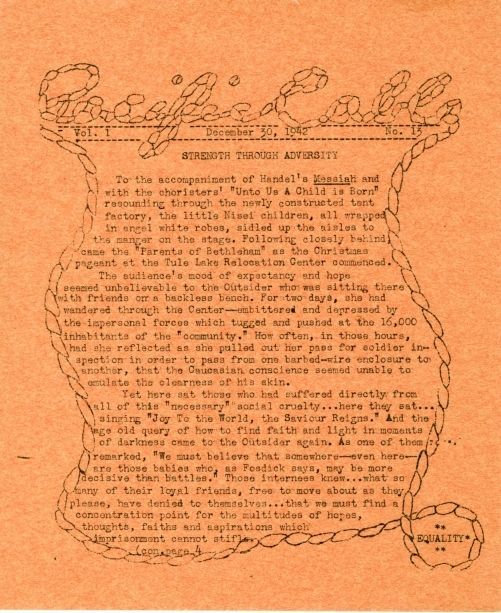 Pacific Calls
Vol. I December 30, 1942 No. 13
STRENGTH THROUGH ADVERSITY
To the accompaniment of Handel's Messiah and
with the choristers' "Unto Us A Child is Born"
resounding through the newly constructed tent
factory, the little Nisei children, all wrapped
in angel white robes, sidled up the aisles to
the manger on the stage. Following closely behind
came the "Parents of Bethleham" as the Christmas
pageant at the Tule Lake Relocation Center commenced.
The audience's mood of expectancy and hope
seemed unbelievable to the Outsider who was sitting there
with friends on a backless bench. For two days, she had
wandered through the Center—embittered and depressed by
the impersonal forces which tugged and pushed at the 16,000
inhabitants of the "community." How often, in those hours,
had she reflected as she pulled out her pass for soldier in-
spection in order to pass from one barbed-wire enclosure to
another, that the Caucasian conscience seemed unable to
emulate the clearness of his skin.
Yet here sat those who had suffered directly from
all of this "necessary" social cruelty...here they sat...
singing "Joy To the World, the Saviour Reigns." And the
age old query of how to find faith and light in moments
of darkness came to the Outsider again. As one of them
remarked, "We must believe that somewhere—even here—
are those babies who, as Fosdick says, may be more
decisive than battles." Those internees knew...what so
many of their loyal friends, free to move about as they
please, have denied to themselves...that we must find a
concentration point for the multitudes of hopes,
thoughts, faiths and aspirations which
imprisonment cannot stifle.
(con.page 4
**
*EQUALITY*
**